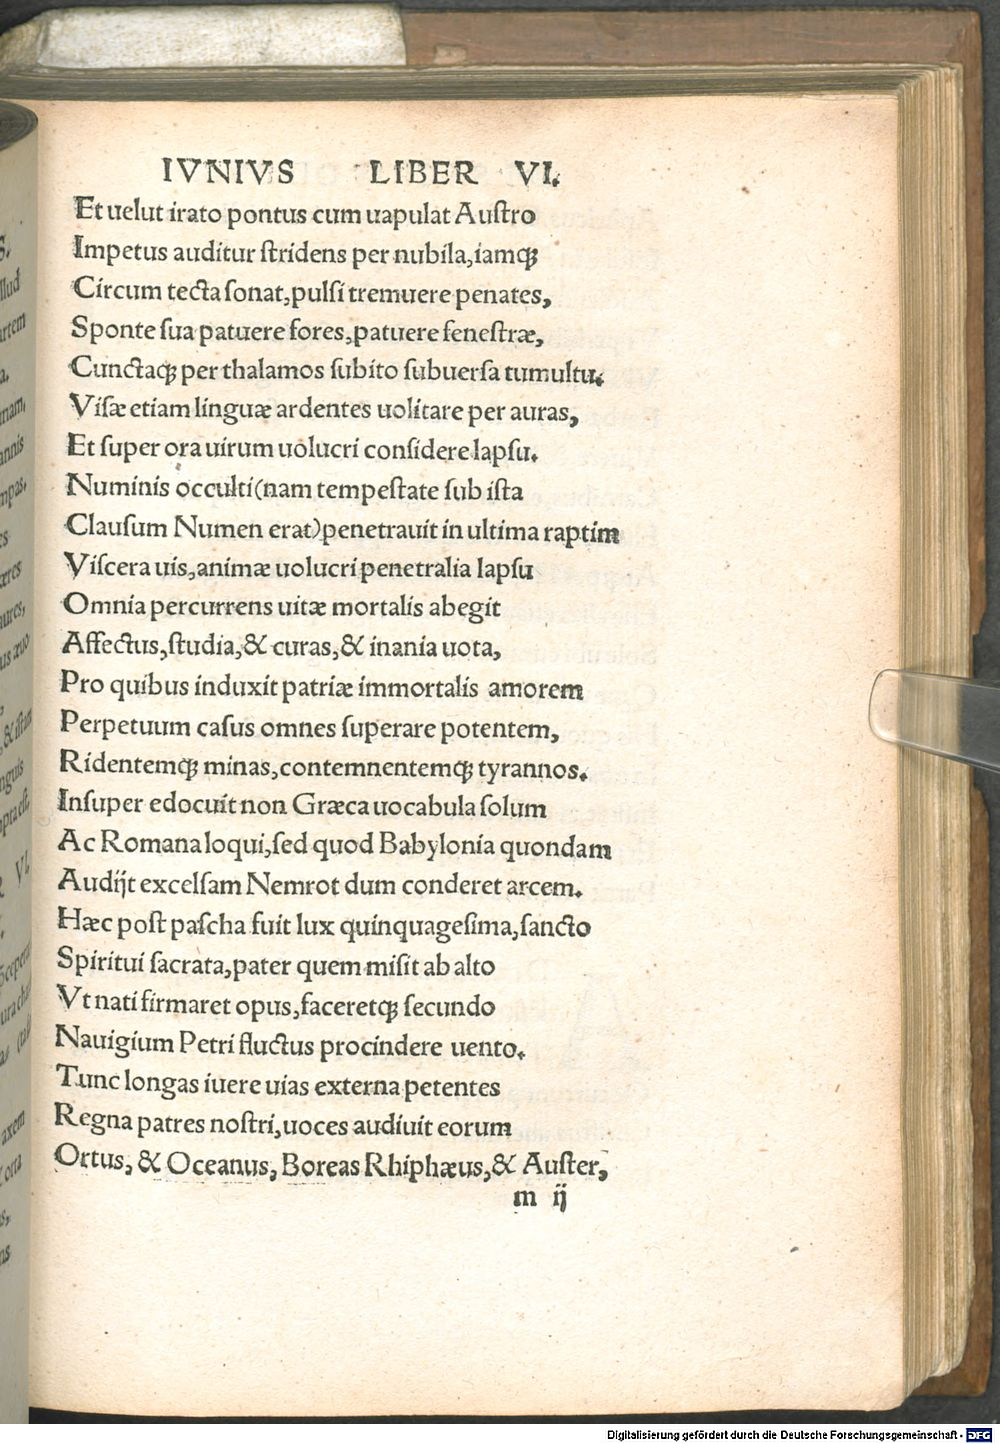 IVNIVS LIBER VI.
Et uelut irato pontus cum uapulat Austro
Impetus auditur stridens per nubila, iamq;
Circum tecta sonat, pulsi tremuere penates,
Sponte sua patuere fores, patuere fenestræ,
Cunctaq; per thalamos subito subuersa tumultu.
Visæ etiam linguæ ardentes uolitare per auras,
Et super ora uirum uolucri considere lapsu.
Numinis occulti (nam tempestate sub ista
Clausum Numen erat) penetrauit in ultima raptim
Viscera uis, animæ uolucri penetralia lapsu
Omnia percurrens uitæ mortalis abegit
Affectus, studia, & curas, & inania uota,
Pro quibus induxit patriæ immortalis amorem
Perpetuum casus omnes superare potentem,
Ridentemq; minas, contemnentemq; tyrannos.
Insuper edocuit non Græca uocabula solum
Ac Romana loqui, sed quod Babylonia quondam
Audijt excelsam Nemrot dum conderet arcem.
Hæc post pascha fuit lux quinquagesima, sancto
Spiritui sacrata, pater quem misit ab alto
Vt nati firmaret opus, faceretq; secundo
Nauigium Petri fluctus procindere uento.
Tunc longas iuere uias externa petentes
Regna patres nostri, uoces audiuit eorum
Ortus, & Oceanus, Boreas Rhiphæus, & Auster,
m ij
Digitalisierung gefördert durch die Deutsche Forschungsgemeinschaft - DFG